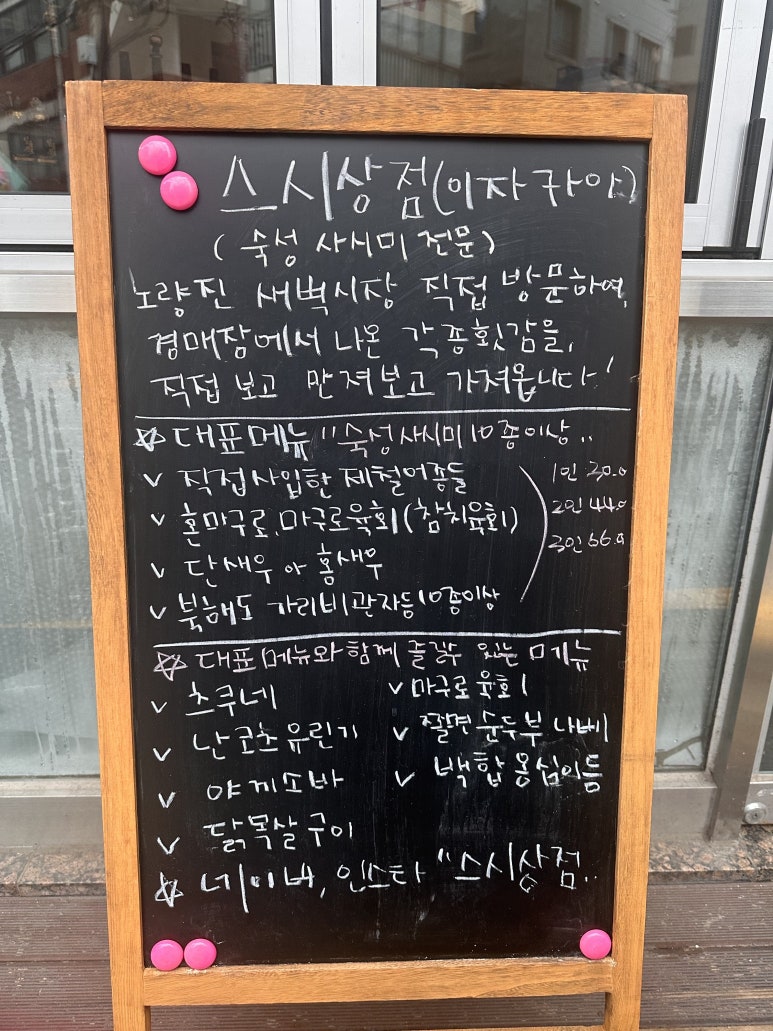 스시상점(이자카야)
(숙성 사시미 전문)
노량진 새벽시장 직접 방문하여,
경매장에서 나온 각종횟감을,
직접 보고 만져보고 가져옵니다!
☆ 대표메뉴 "숙성사시미10종이상..
v 직접사입한 제철어종들
v 혼마구로, 마구로육회(참치육회)
v 단새우 아 홍새우
v 북해도 가리비관자등10종이상
1인 30.0
2인 44.0
3인 66.0
☆ 대표메뉴와함께 즐길수 있는 메뉴
v 츠쿠네
v 난코츠유린기
v 야끼소바
v 닭목살구이
v 마구로육회
v 쫄면순두부나베
v 백합옹심이등
☆ 네이버, 인스타 "스시상점..